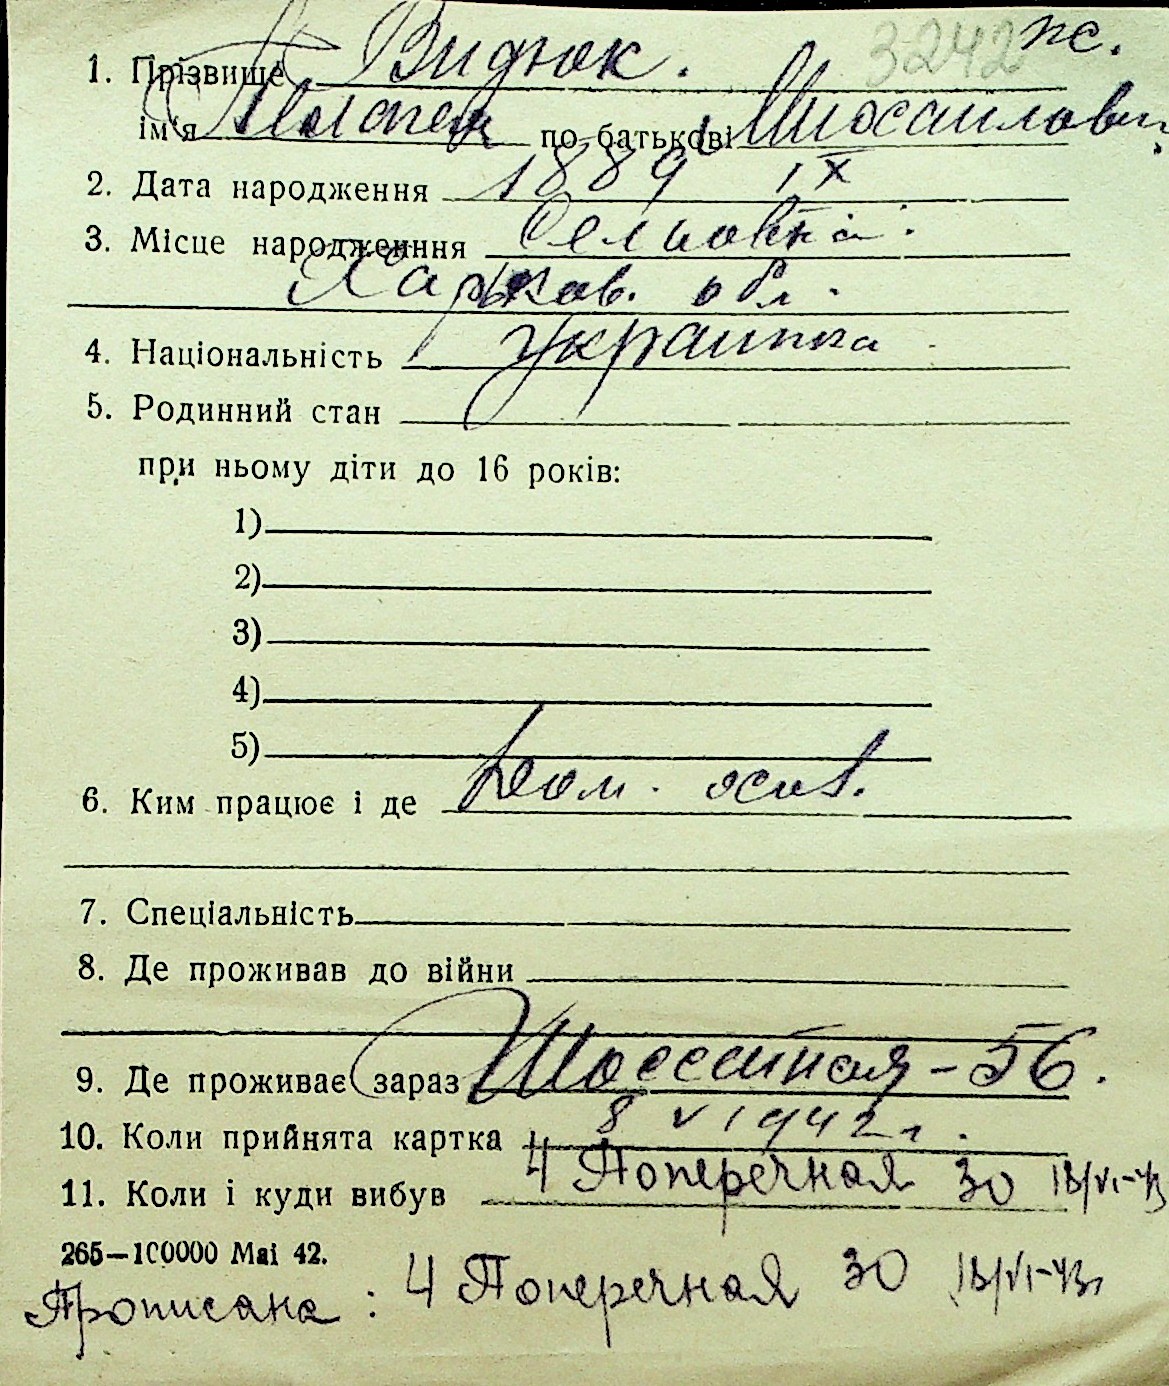 3242 ж.
1. Прізвище Видюк.
ім'я по батькові Михайловн
2. Дата народження 1889 IX
3. Місце народженння
Харьков. обл.
4. Національність украинка
5. Родинний стан
при ньому діти до 16 років:
1)
2)
3)
4)
5)
6. Ким працює і де Дом. хоз.
7. Спеціальність
8. Де проживав до війни
9. Де проживає зараз Шоссейная - 56.
10. Коли прийнята картка 8 V 1942 г.
11. Коли і куди вибув 4 Поперечная 30 18/VI-43
265—100000 Mai 42.
Прописана: 4 Поперечная 30 18/VI-43г